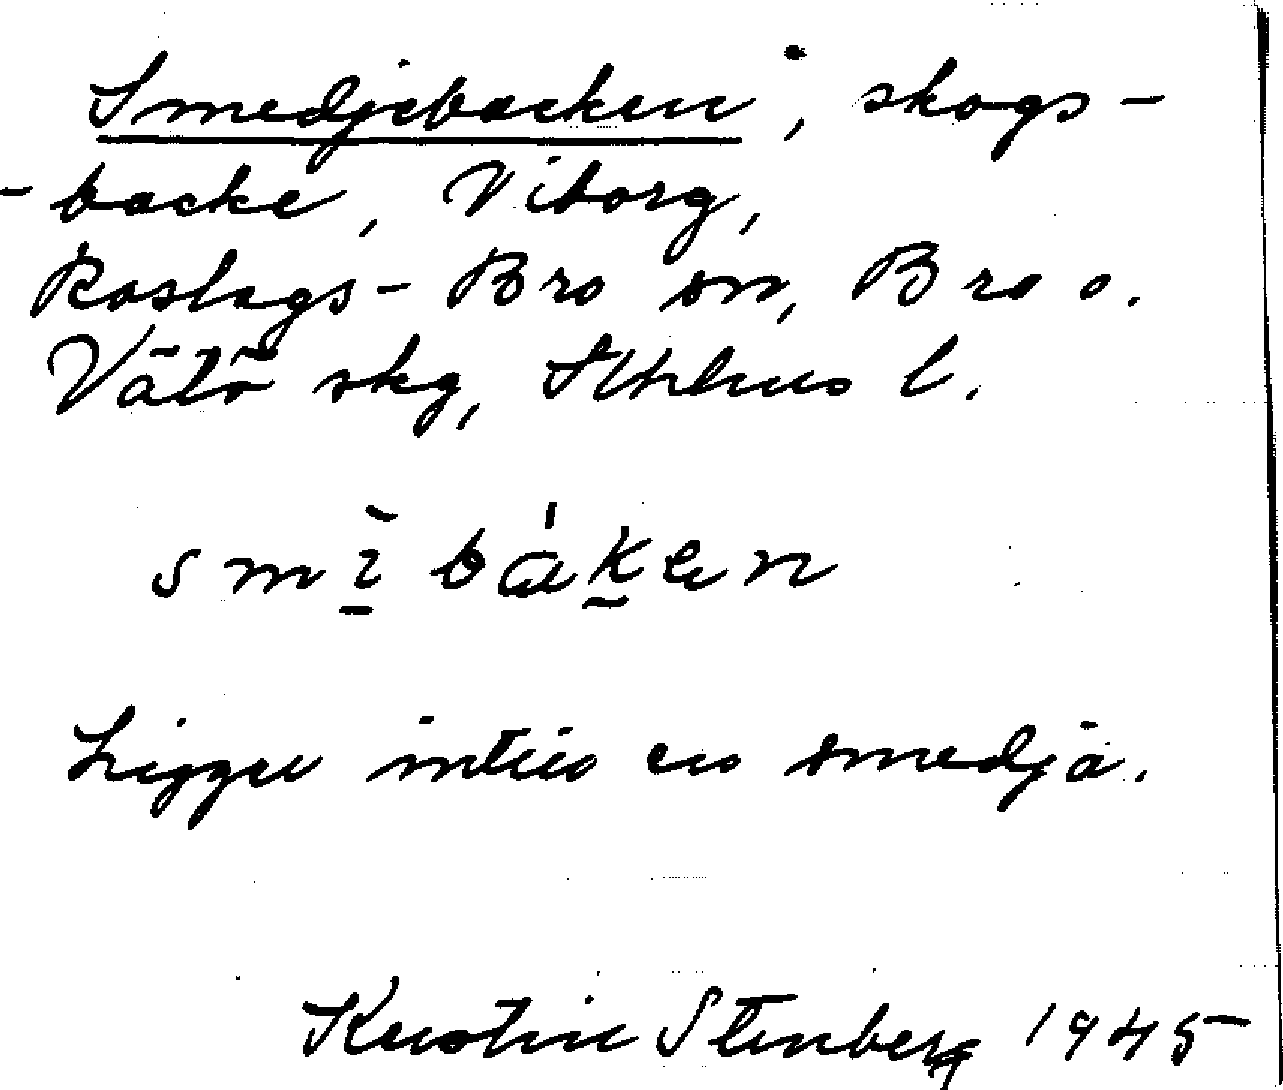 Smedjebacken, skogs-
-backe, Viborg,
Roslags-Bro sn, Bro o.
Vätö skg, Sthlms l.
smībáken
Ligger intill en smedja.
Kerstin Stenberg 1945